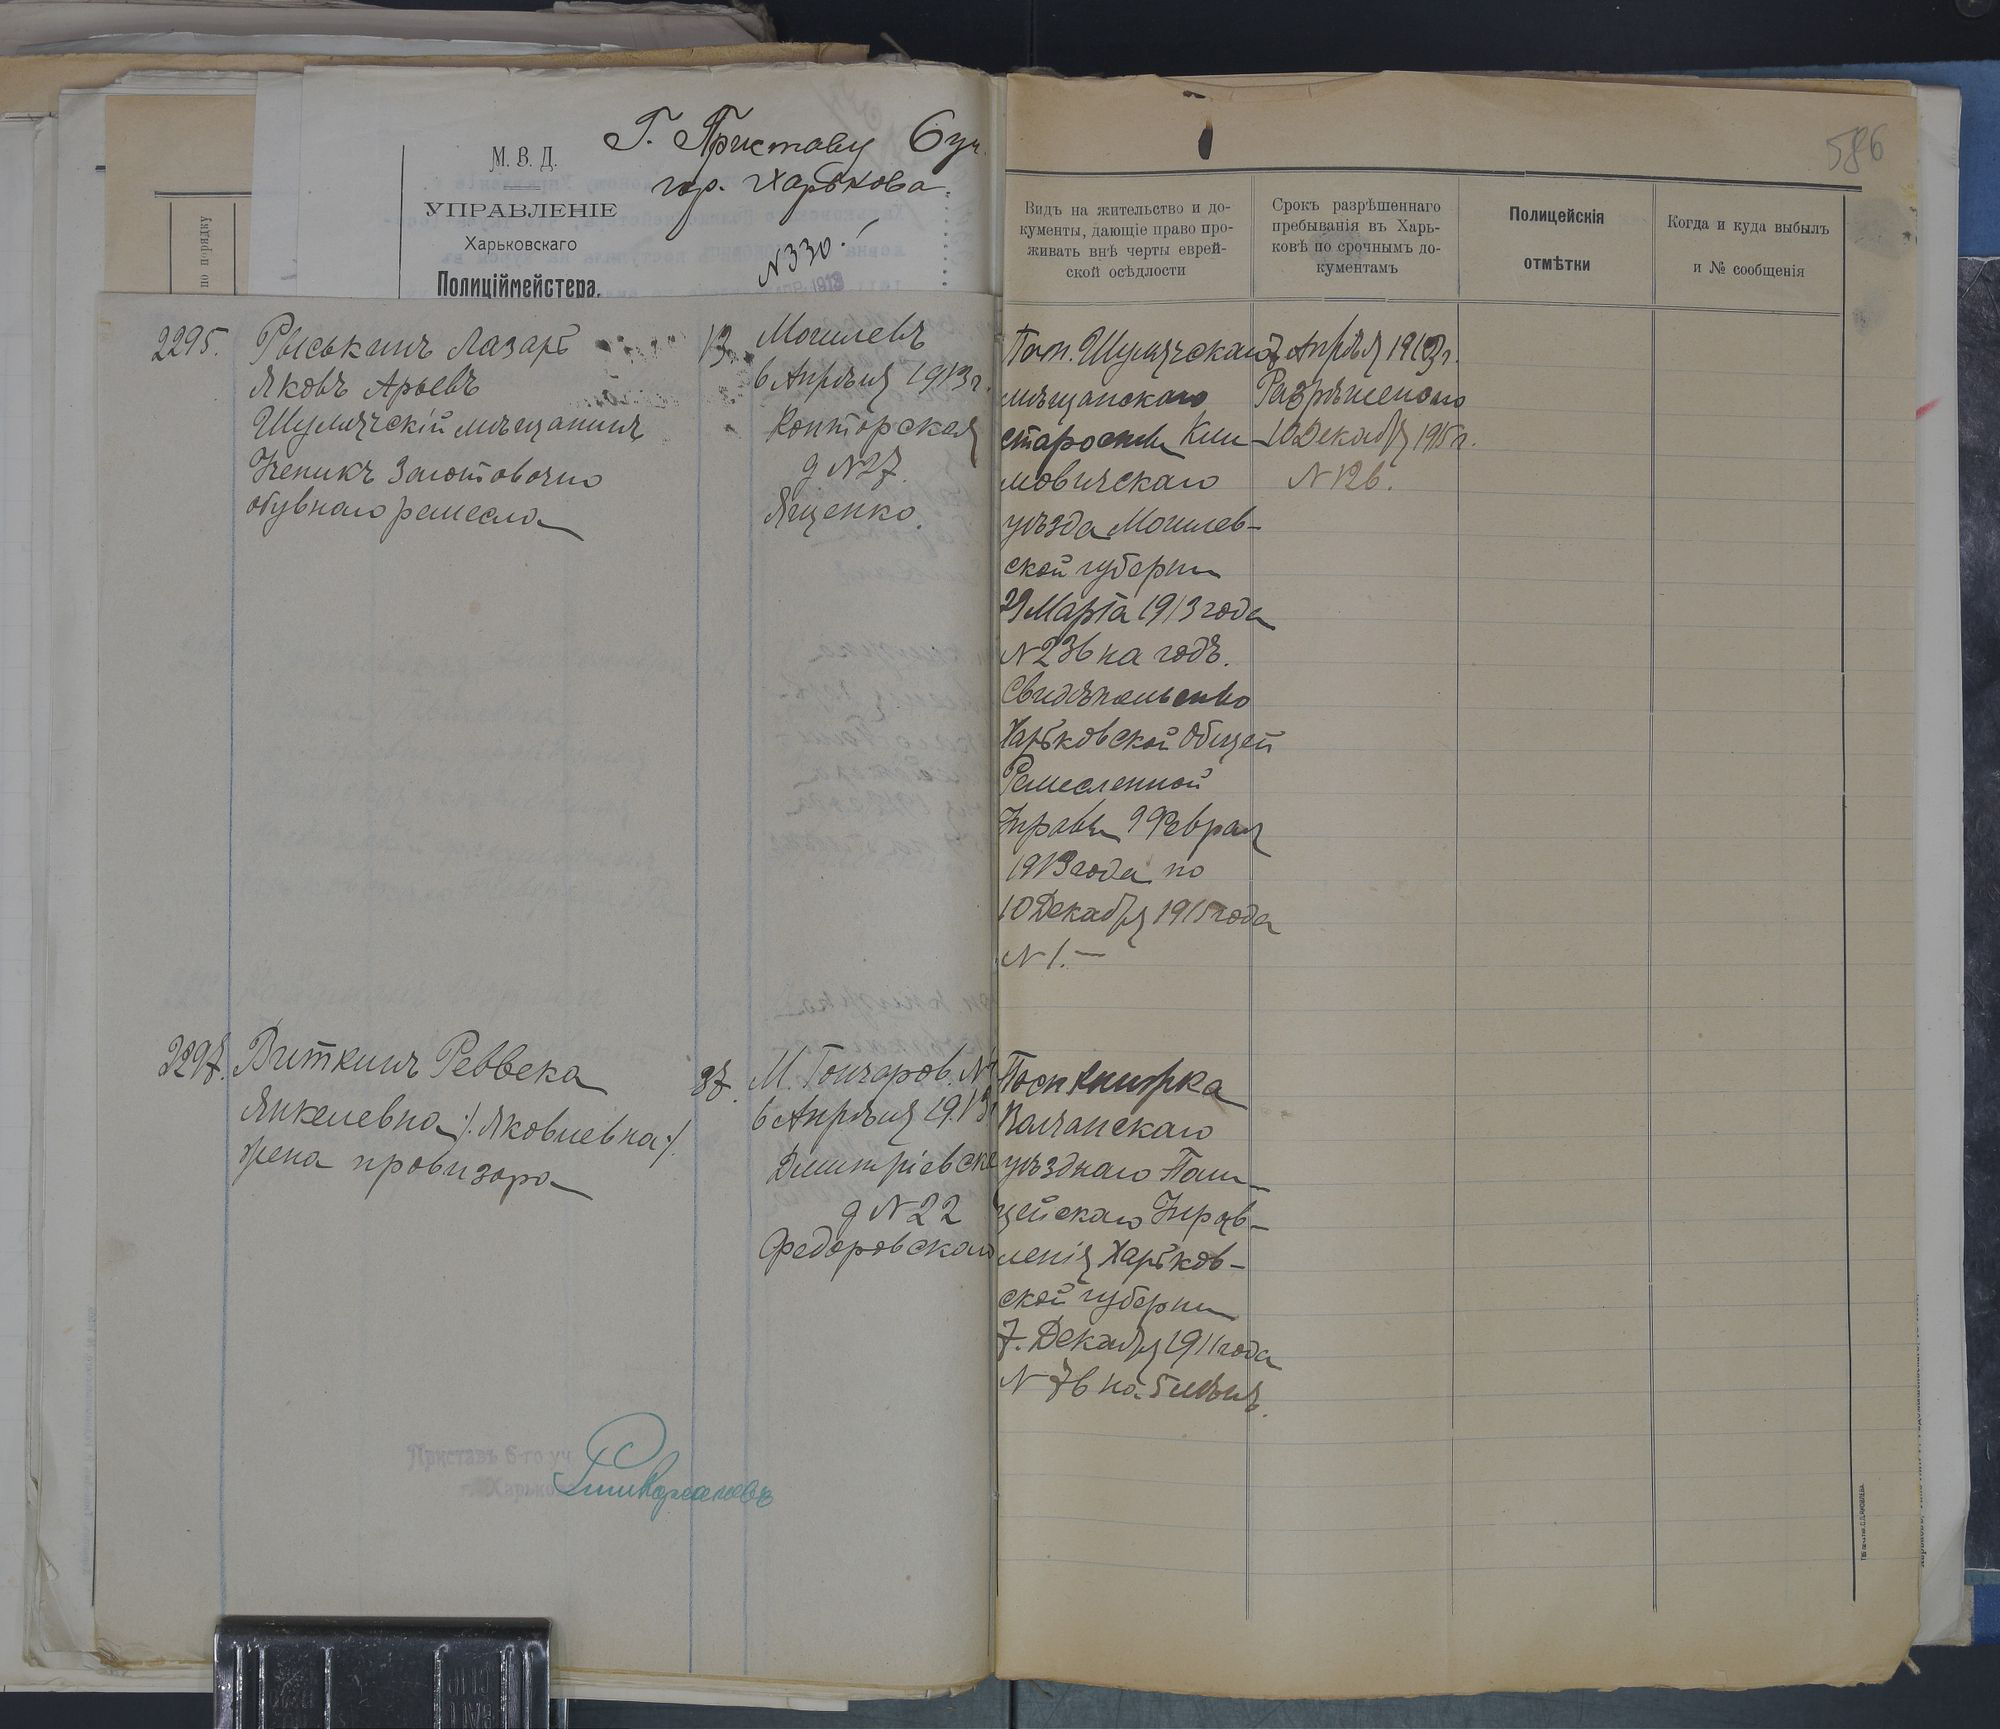 М. В. Д.
УПРАВЛЕНІЕ
Харьковскаго
Полиціймейстера.
Г. Приставу 6 уч.
гор. Харькова.
№ 330.
по порядку
586
Видъ на жительство и до-
кументы, дающіе право про-
живать внѣ черты еврей-
ской осѣдлости
Срокъ разрѣшеннаго
пребыванія въ Харь-
ковѣ по срочнымъ до-
кументамъ
Полицейскія
отмѣтки
Когда и куда выбылъ
и № сообщенія
2295.
Рыськинъ Лазарь
Яковъ Арьевъ
Шумячскій мѣщанинъ
Ученикъ заготовочно
обувнаго ремесла
13.
Могилевъ
6 Апрѣля 1913 г.
Конторская
д № 27.
Яценко.
Пасп. Шумячскаго
мѣщанскаго
старосты Кли-
мовичскаго
уѣзда Могилев-
ской губерни
29 Марта 1913 года
№ 236 на годъ.
Свидѣтельство
Харьковской Общей
Ремесленной
Управы 9 Февраля
1913 года по
10 Декабря 1915 года
№ 1. —
7 Апрѣля 1913 г.
Разрѣшено по
10 Декабря 1915 г.
№ 126.
2297.
Виткинъ Реввека
Янкелевна ./. Яковлевна ./.
жена провизора
37.
М. Гончаров. №
6 Апрѣля 1913
Дмитріевск
д № 22
Федоровскаго
Пасп книжка
Волчанскаго
уѣзднаго Поли-
цейскаго Управ-
ленія Харьков-
ской губерни
7. Декабря 1911 года
№ 76 на 5 лѣтъ.
Приставъ 6-го уч.
г. Харько